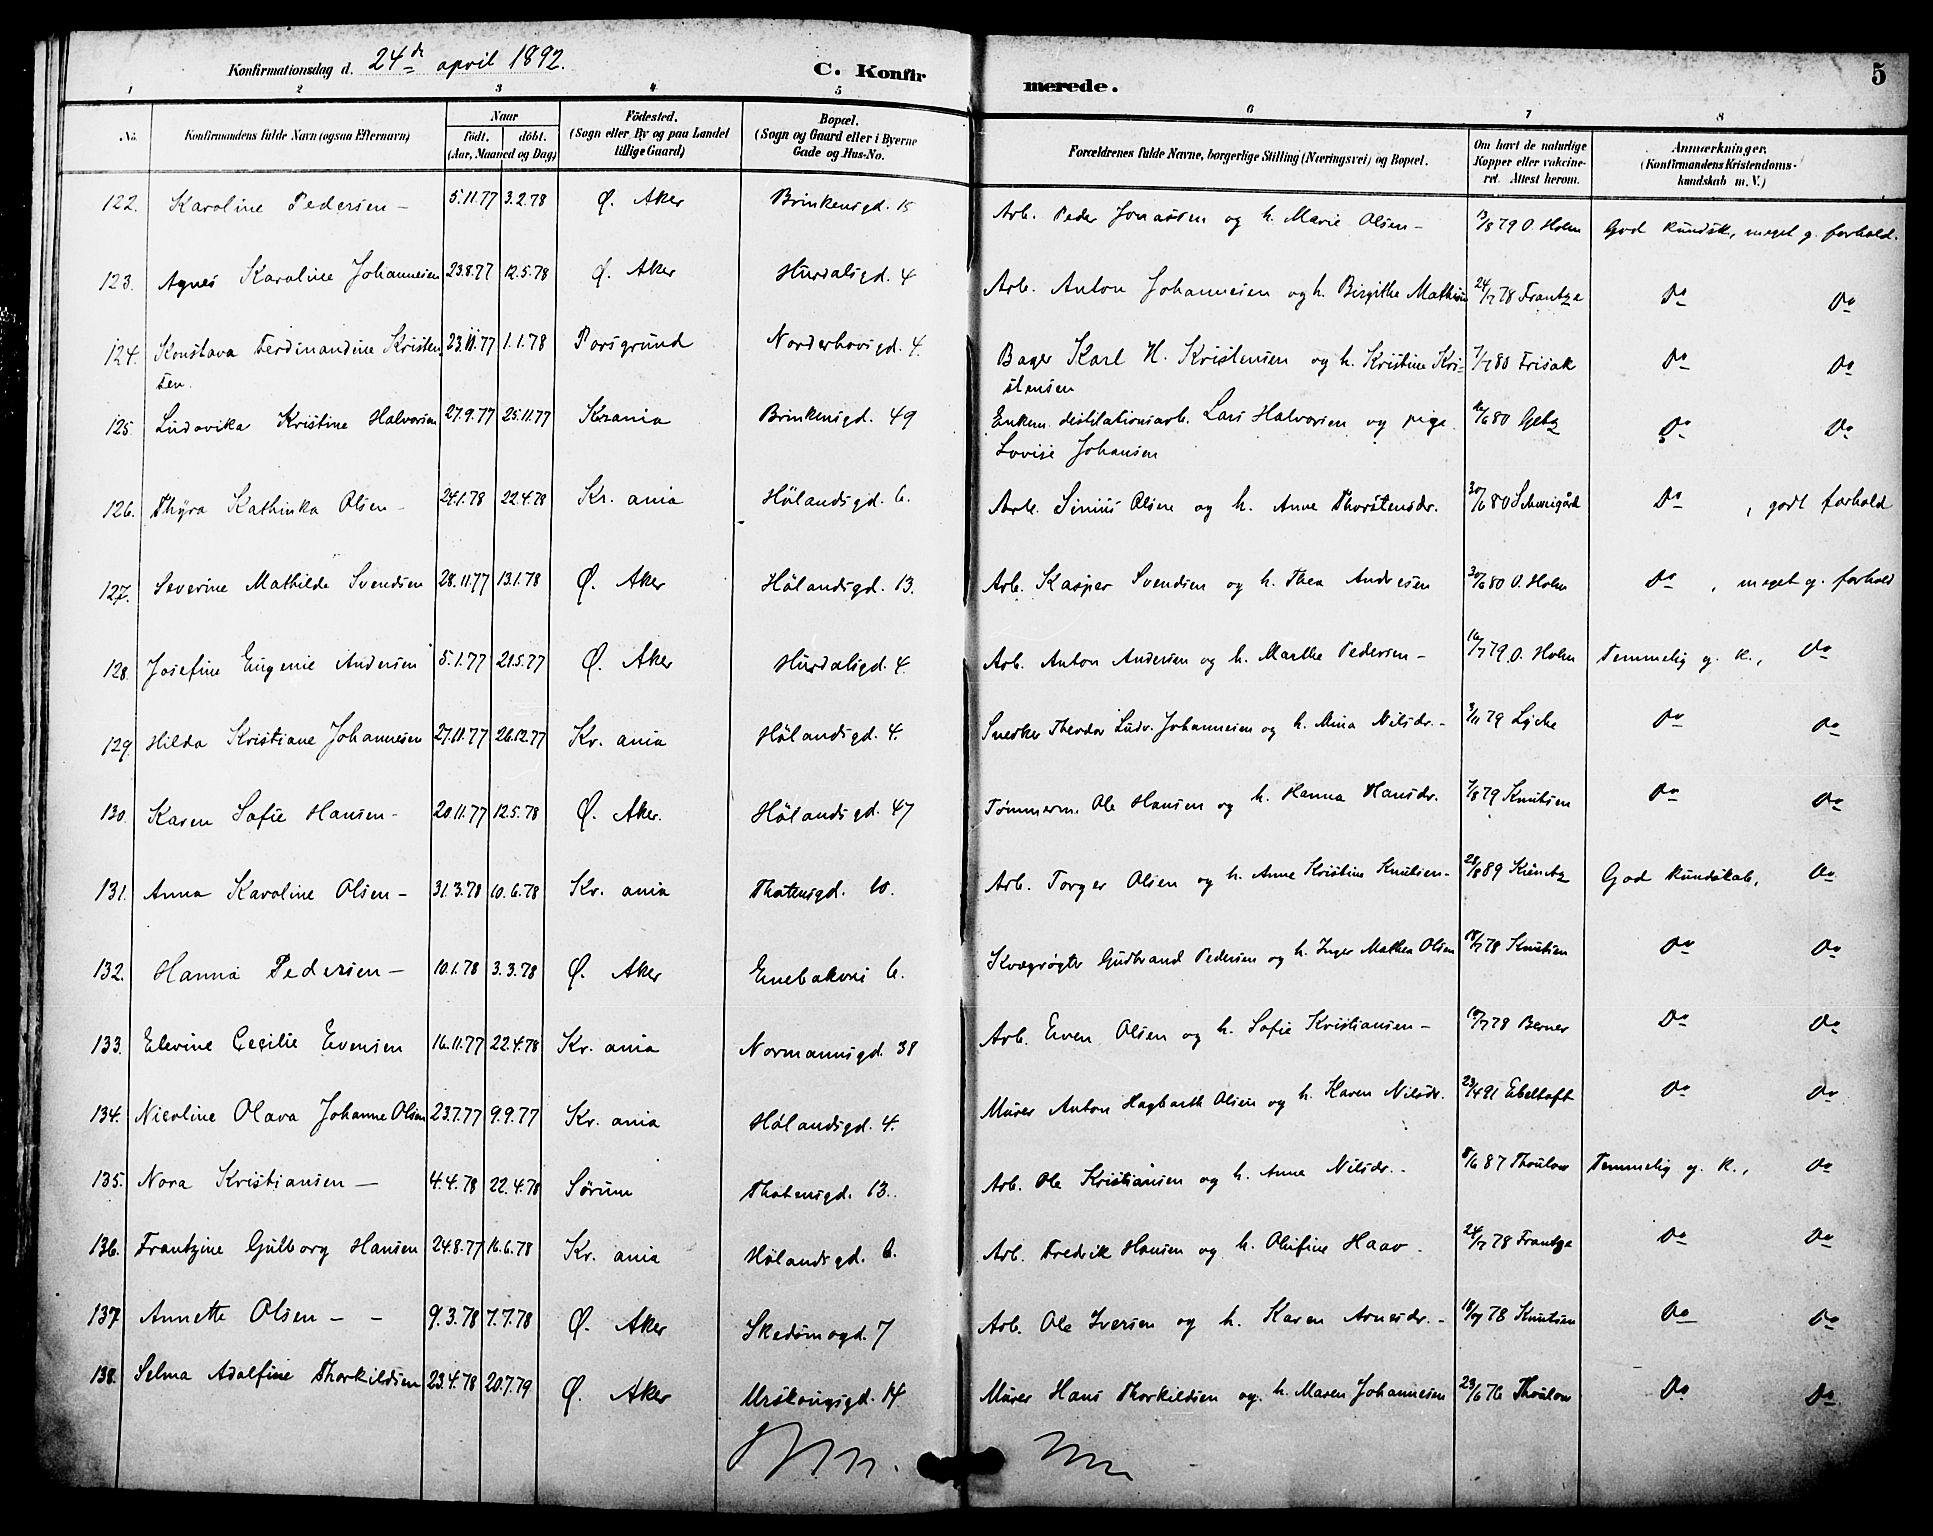 Konfirmationsdag d. 24de april 1892. C. Konfirmerede. 5
1 2 3 4 5 6 7 8
No. Konfirmandens fulde Navn (ogsaa Efternavn) Naar født. døbt. (Aar, Maaned og Dag) Fødested. (Sogn eller By og paa Landet tillige Gaard) Bopæl. (Sogn og Gaard eller i Byerne Gade og Hus-No. Forældrenes fulde Navne, borgerlige Stilling (Næringsvei) og Bopæl. Om havt de naturlige Kopper eller vakcineret. Attest herom. Anmærkninger. (Konfirmandens Kristendomskundskab m. V.)
122. Karoline Pedersen – 5.11.77 3.2.78 Ø. Aker Brinkensgd. 15 Arb. Peder Jonassen og h. Marie Olsen – /8 79 O. Holm God kundsk., meget g. forhold.
123. Agnes Karoline Johannesen 23.8.77 12.5.78 Ø. Aker Hurdalsgd. 4 Arb. Anton Johannesen og h. Birgithe 24/7 78 Frantze Do Do
124. Konstava Ferdinandine Kristensen. 23.11.77 1.1.78 Porsgrund Norderhovsgd. 4. Bager Karl H. Kristensen og h. Kristine Kristensen 7/7 80 Frisak Do Do
125. Ludovika Kristine Halvorsen 27.9.77 25.11.77 Krania Brinkensgd. 49 Enkem. distilationsarb. Lars Halvorsen og pige Lovise Johansen /6 80 Getz Do Do
126. Thyra Kathinka Olsen – 24.1.78 22.4.78 Kr.ania Hølandsgd. 6. Arb. Olsen og h. Anne Thorstensdr. 30/6 80 Schweigård Do , godt forhold
127. Severine Mathilde Svendsen 28.11.77 13.1.78 Ø. Aker Hølandsgd. 13. Arb. Kasper Svendsen og h. Thea Andresen 30/6 80 O. Holm Do , meget g. forhold
128. Josefine Eugenie Andersen 5.1.77 21.5.77 Ø. Aker Hurdalsgd. 4. Arb. Anton Andersen og h. Marthe Pedersen – 16/7 79 O. Holm Temmelig g. k., Do
129. Hilda Kristiane Johannesen 27.11.77 26.12.77 Kr.ania Hølandsgd. 4. Snedker Theodor Ludv. Johannesen og h. Mina Nilsdr. – /11 79 Lyche Do Do
130. Karen Sofie Hansen – 20.11.77 12.5.78 Ø. Aker. Hølandsgd. 47 Tømmerm. Ole Hansen og h. Hanna Hansdr. 7/8 79 Knutsen Do Do
131. Anna Karoline Olsen – 31.3.78 10.6.78 Kr.ania Thotensgd. 10. Arb. Torger Olsen og h. Anne Kristine Knutsen – 28/8 89 Kuntz God kundskab, Do
132. Hanna Pedersen – 10.1.78 3.3.78 Ø. Aker Enebakvei 6. Kvægrøgter Gudbrand Pedersen og h. Inger Mathea Olsen 18/7 78 Knutsen Do Do
133. Elevine Cecilie Evensen 16.11.77 22.4.78 Kr.ania Normannsgd. 38 Arb. Even Olsen og h. Sofie Kristiansen – /7 78 Berner Do Do
134. Nicoline Olava Johanne Olsen 23.7.77 9.9.77 Kr.ania Hølandsgd. 4. Murer Anton Hagbarth Olsen og h. Karen Nilsdr. 23/4 91 Ebeltoft Do Do
135. Nora Kristiansen – 4.4.78 22.4.78 Sørum Thotensgd. 13. Arb. Ole Kristiansen og h. Anne Nilsdr. – 8/6 87 Thoulow Temmelig g. k., Do
136. Frantzine Gulborg Hansen 24.8.77 16.6.78 Kr.ania Hølandsgd. 6. Arb. Fredrik Hansen og h. Olufine Haav – 24/7 78 Frantze Do Do
137. Annette Olsen – – 9.3.78 7.7.78 Ø. Aker Skedsmogd. 7 Arb. Ole Iversen og h. Karen Arnesdr. – 18/ 78 Knutsen Do Do
138. Selma Adolfine Thorkildsen 23.4.78 20.7.79 Ø. Aker Urskougsgd. 14 Murer Hans Thorkildsen og h. Maren Johannesen 23/6 76 Thoulow Do Do